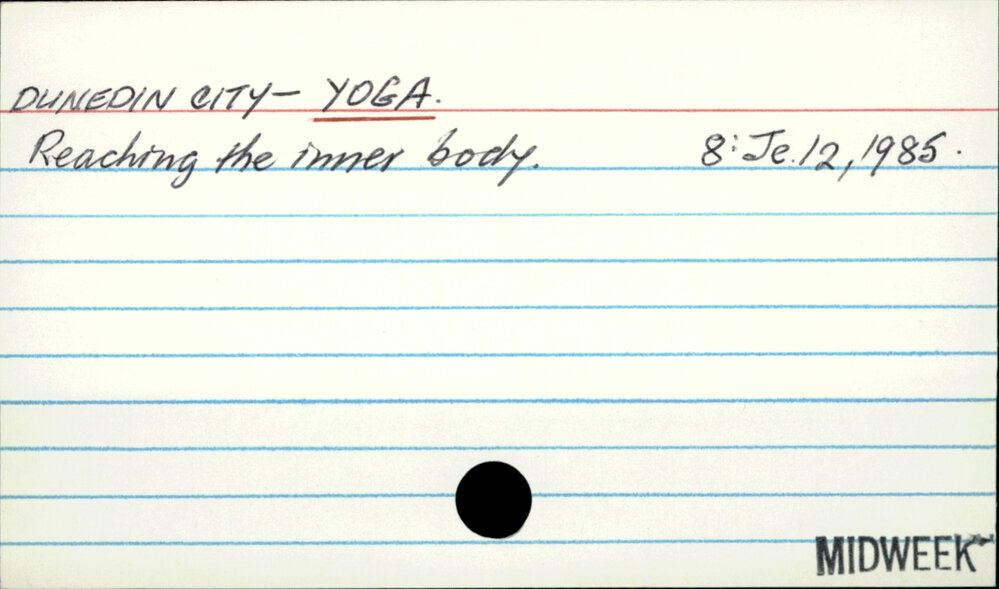 DUNEDIN CITY— YOGA.
Reaching the inner body. 8: Je.12, 1985.
MIDWEEK